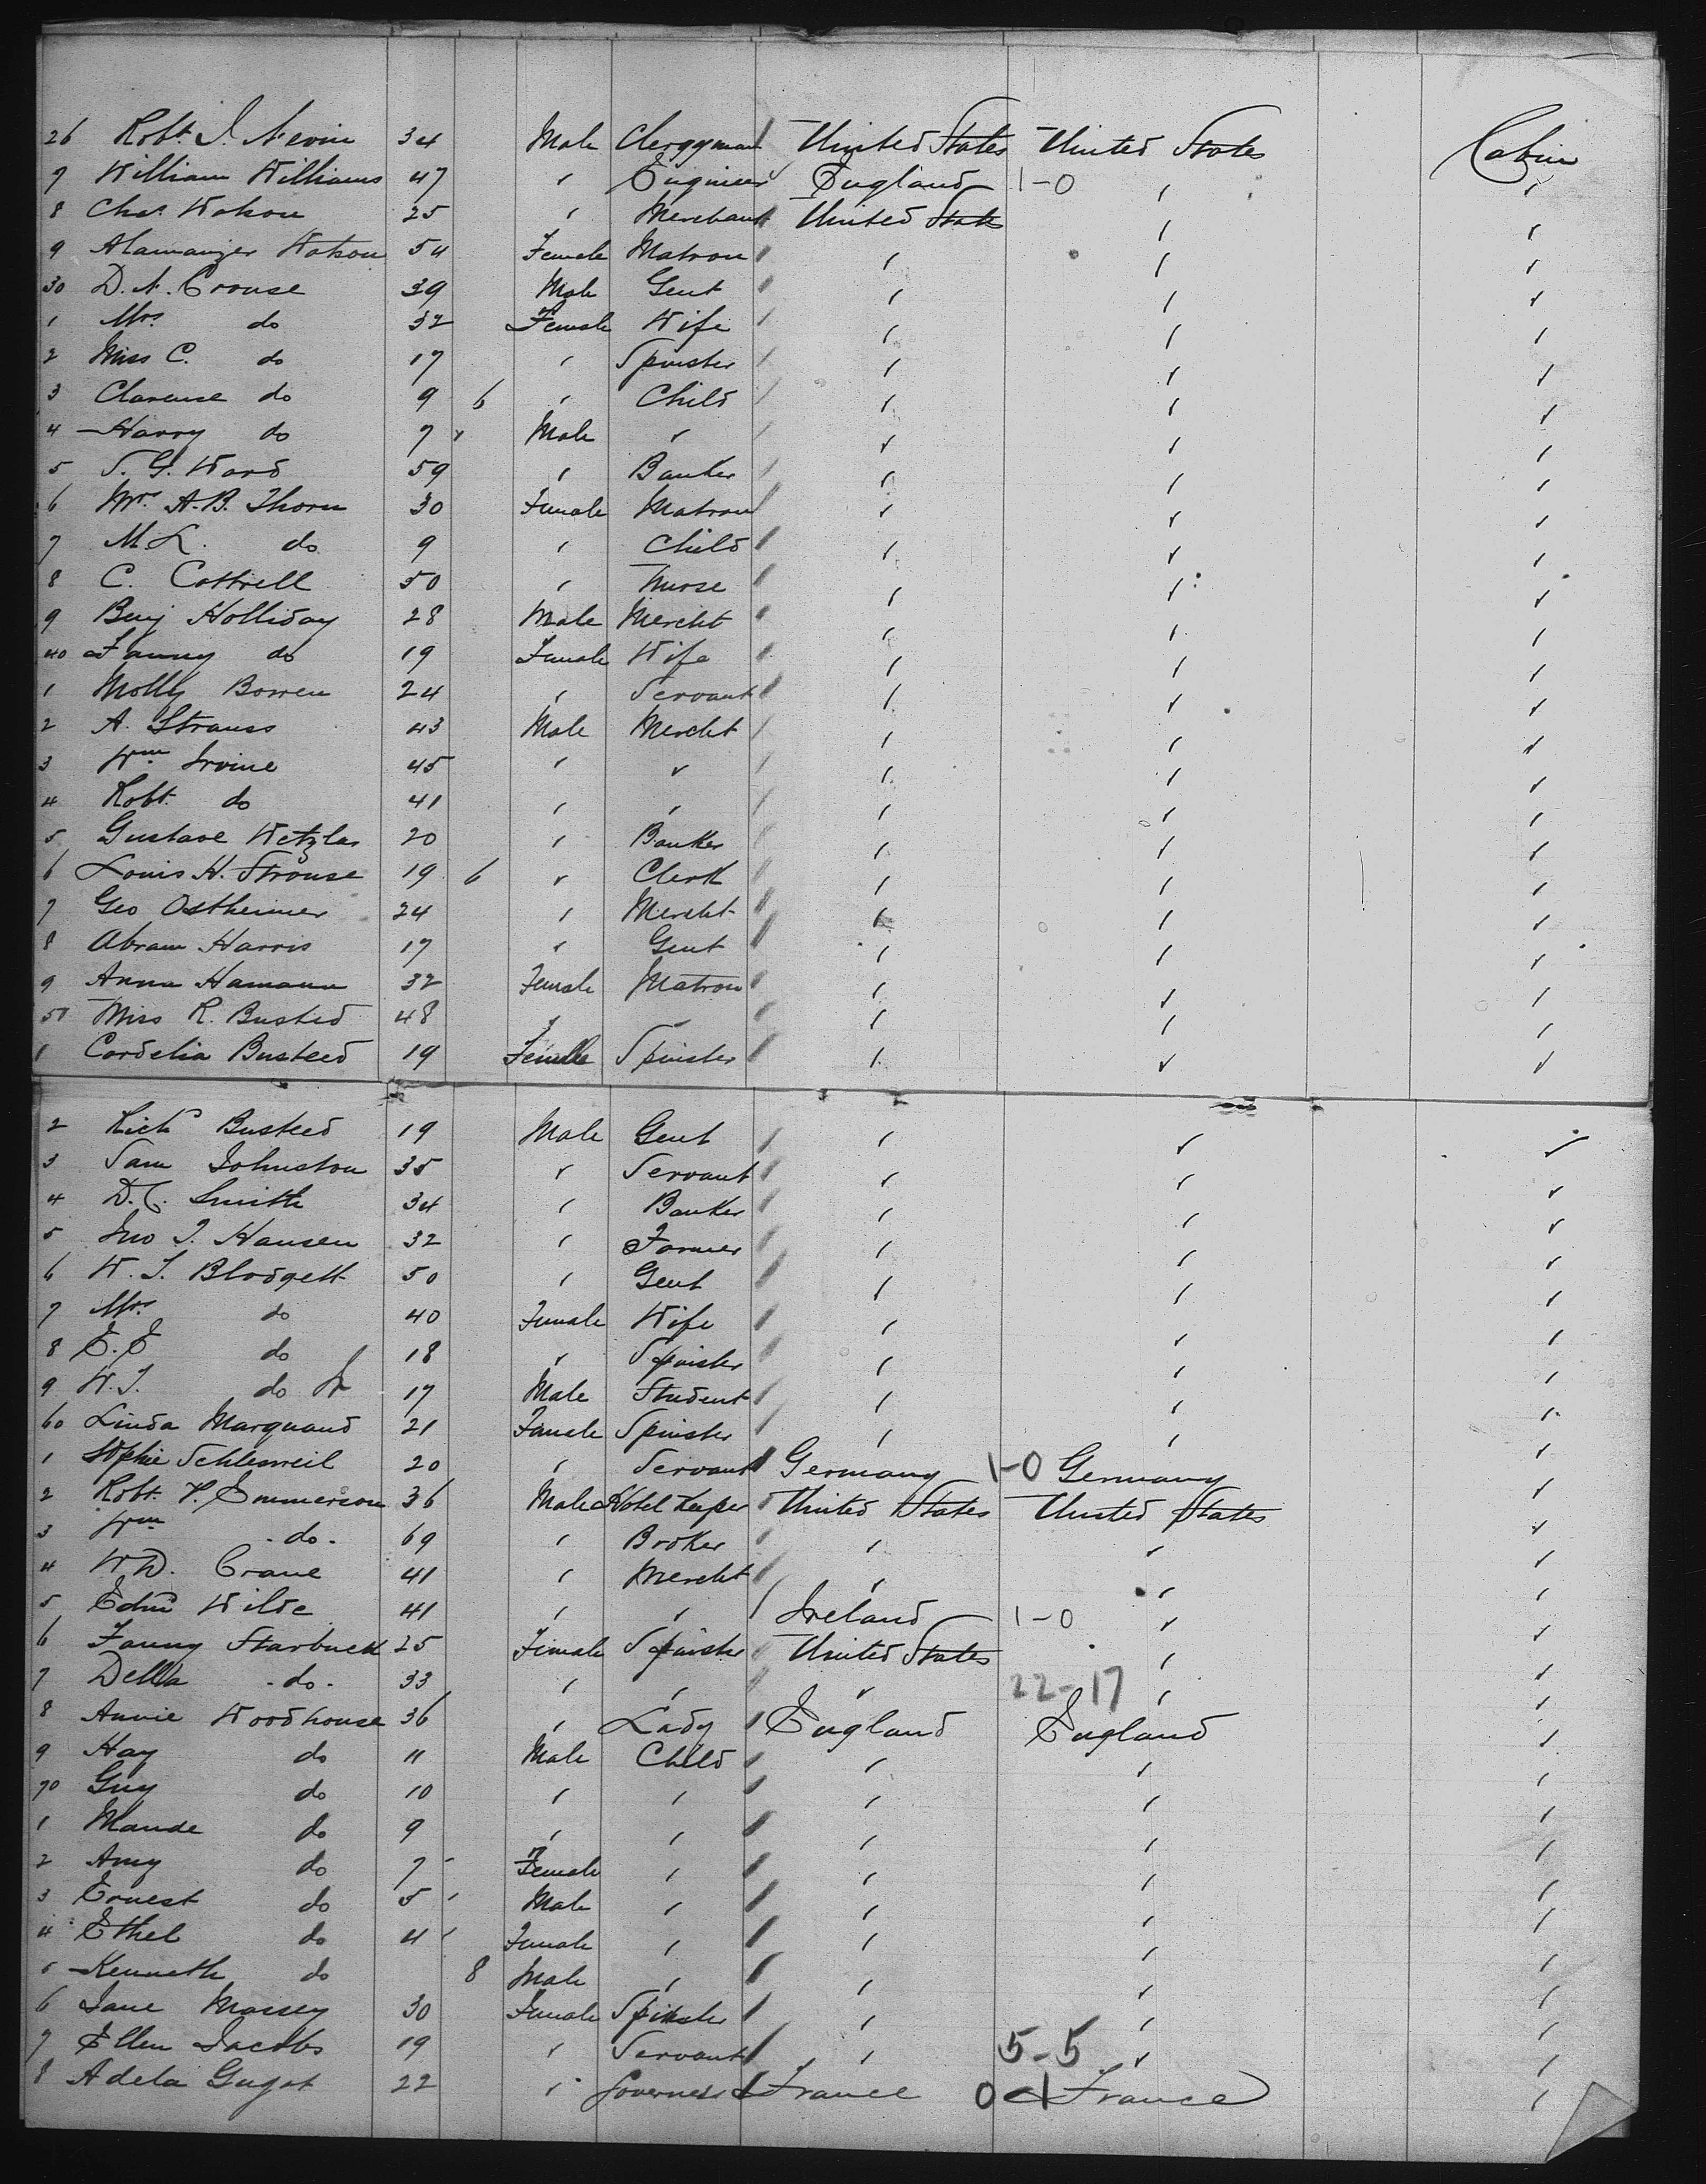 26 Robt. J. Nevin 34 Male Clergyman United States United States Cabin
7 William Williams 47 " Engineer England 1-0 " "
8 Chas. Watson 25 " Merchant United States " "
9 Watson 54 Female Matron " " "
30 D. N. Crouse 39 Male Gent " " "
1 Mrs. do 32 Female Wife " " "
2 Miss C. do 17 " Spinster " " "
3 Clarence do 9 6 " Child " " "
4 Harry do 7 " Male " " " "
5 S. G. Ward 59 " Banker " " "
6 Mrs. A. B. Thorn 30 Female Matron " " "
7 M L. do 9 " Child " " "
8 C. Cottrell 50 " Nurse " " "
9 Benj Holliday 28 Male Mercht " " "
40 Fanny do 19 Female Wife " " "
1 Molly Bowen 24 " Servant " " "
2 A. Strauss 43 Male Mercht " " "
3 Wm Irvine 45 " " " " "
4 Robt. do 41 " " " " "
5 Gustave Wetzlar 20 " Banker " " "
6 Louis H. Strouse 19 6 " Clerk " " "
7 Geo Ostheimer 24 " Mercht " " "
8 Abram Harris 17 " Gent " " "
9 Anna Hamann 32 Female Matron " " "
50 Miss R. Busted 48 " " " " "
1 Cordelia Busteed 19 Female Spinster " " "
2 Richd Busteed 19 Male Gent " " "
3 Sam Johnston 35 " Servant " " "
4 D. C. Smith 34 " Banker " " "
5 Jno J. Hansen 32 " Farmer " " "
6 W. T. Blodgett 50 " Gent " " "
7 Mrs. do 40 Female Wife " " "
8 E. E do 18 " Spinster " " "
9 W. T. do Jr 17 Male Student " " "
60 Linda Marquand 21 Female Spinster " " "
1 Sophie 20 " Servant Germany 1-0 Germany "
2 Robt. P. Emmerson 36 Male Hotel Keeper United States United States "
3 Wm do. 69 " Broker " " "
4 W. D. Crane 41 " Mercht " " "
5 Edwd Wilde 41 " " Ireland 1-0 " "
6 Fanny Starbuck 25 Female Spinster United States " "
7 Della do. 33 " " " 22-17 " "
8 Annie Woodhouse 36 " Lady England England "
9 Hay do 11 Male Child " " "
70 Guy do 10 " " " " "
1 Maude do 9 " " " " "
2 Amy do 7 " Female " " " "
3 Ernest do 5 " Male " " " "
4 Ethel do 4 " Female " " " "
5 Kenneth do 8 Male " " " "
6 Jane Massey 30 Female Spinster " " "
7 Ellen Jacobs 19 " Servant " 5-5 " "
8 Adela 22 " Governess France 0-1 France "